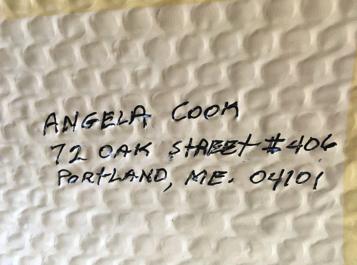 ANGELA COOK
72 OAK STREET #406
PORTLAND, ME. 04101